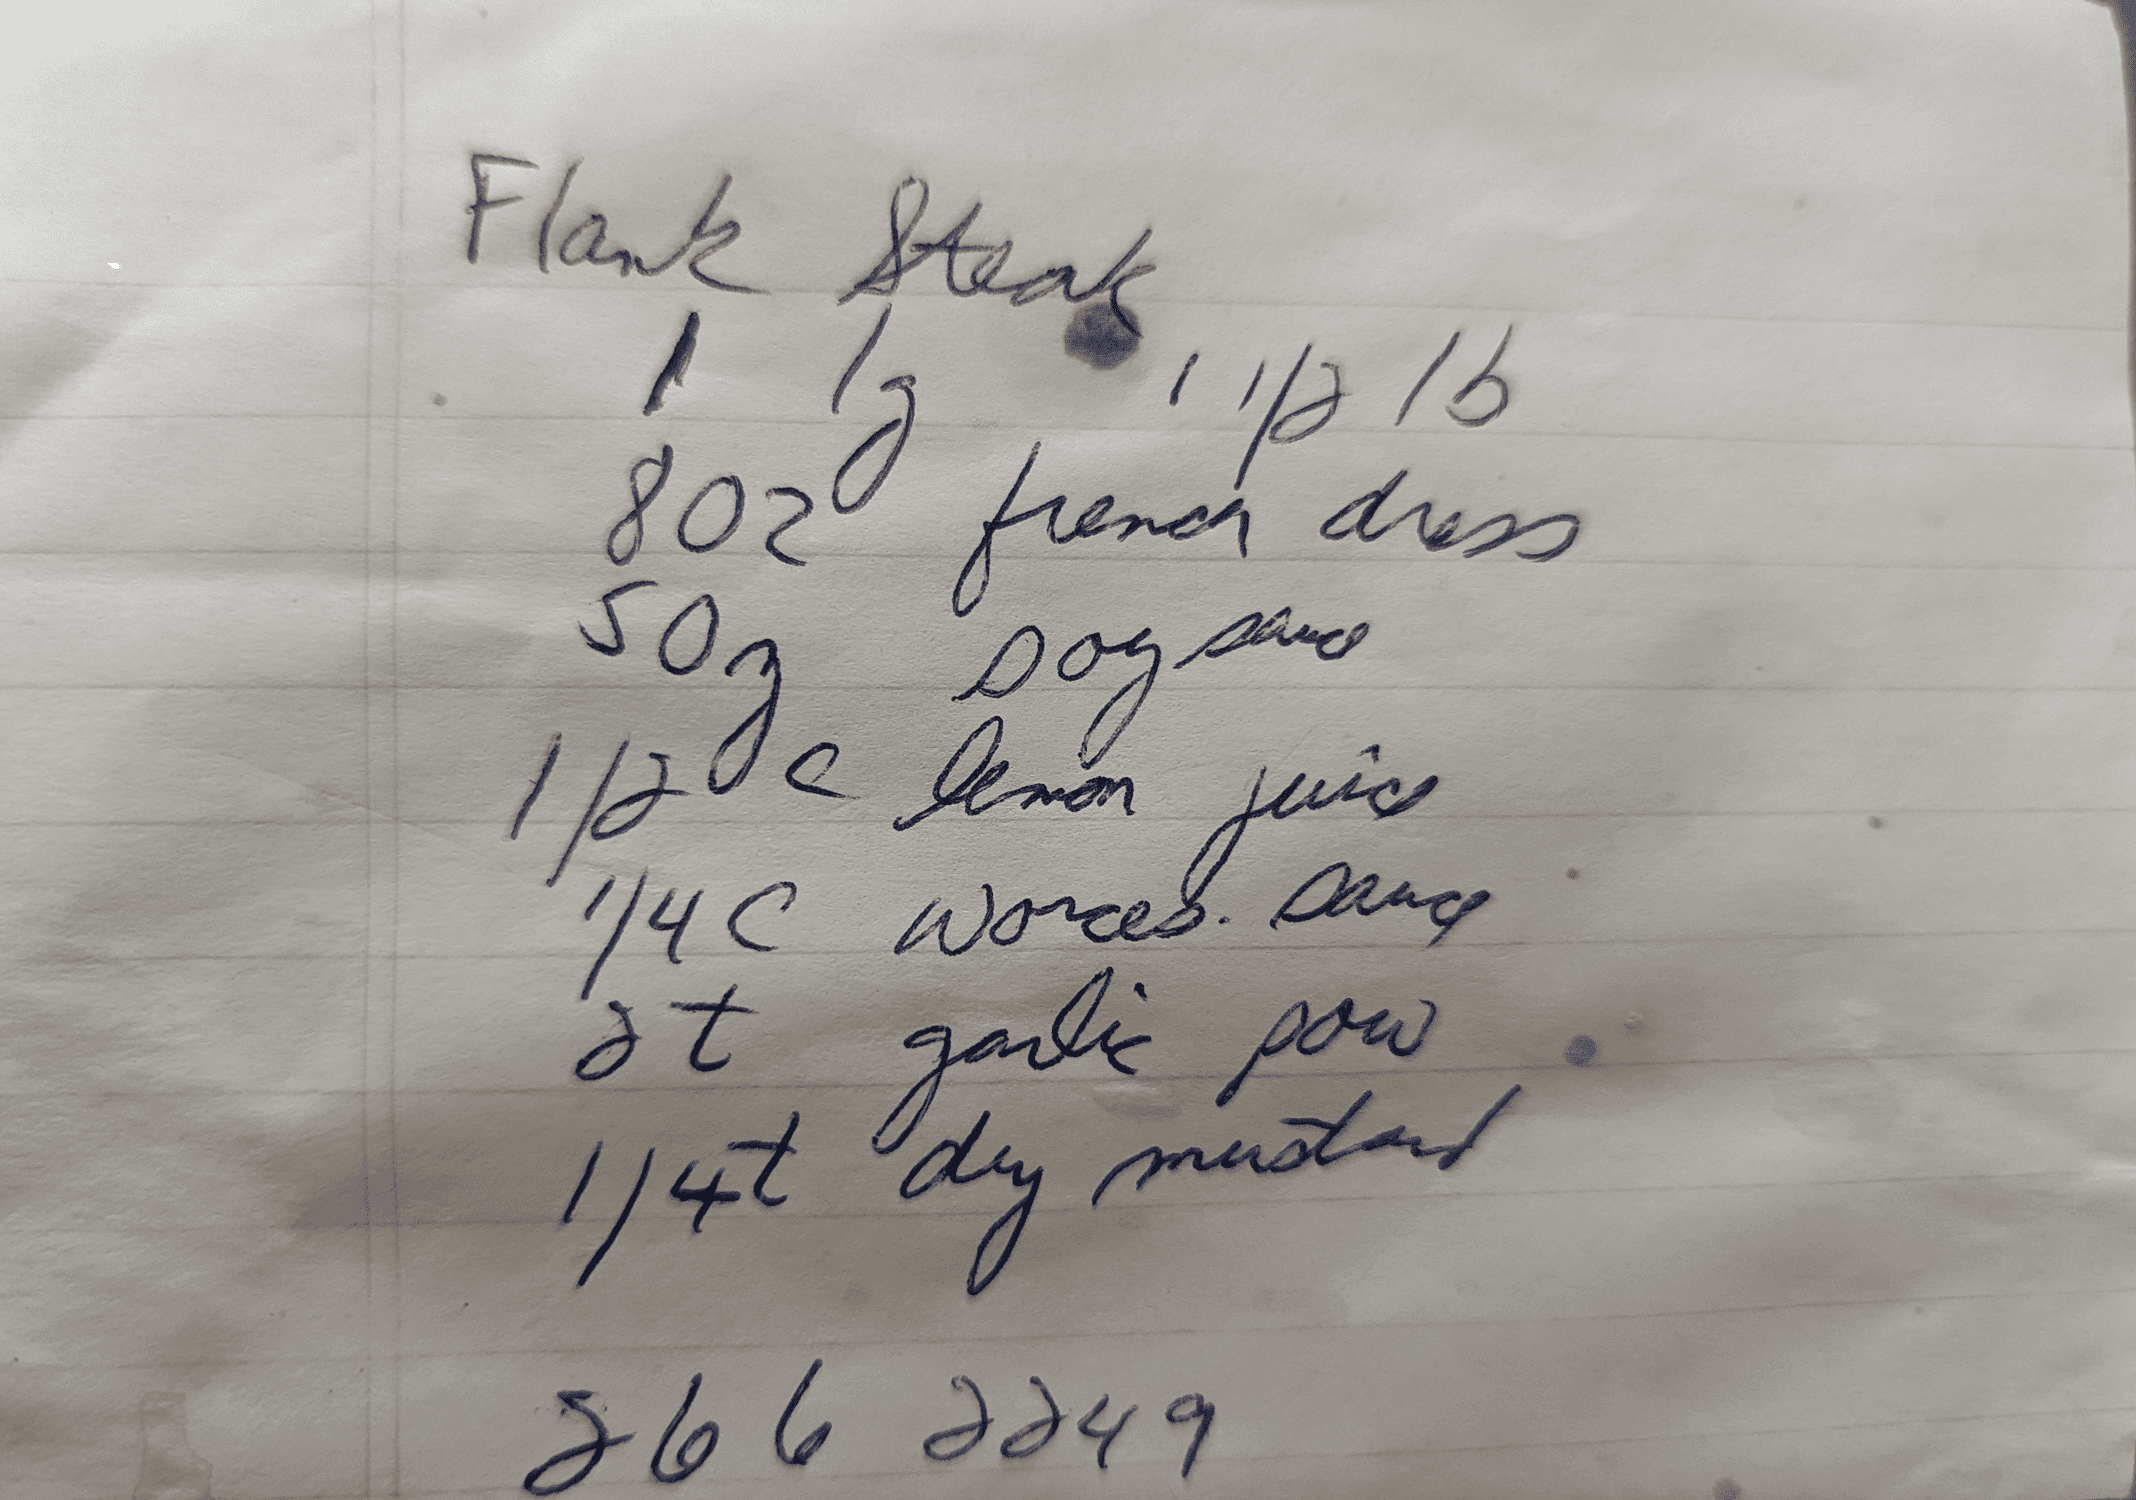 Flank Steak
1 lg 1 1/2 lb
8oz french dress
5oz soy sauce
1/2 c lemon juice
1/4 c worces. sauce
2t garlic pow
1/4t dry mustard
266 2249